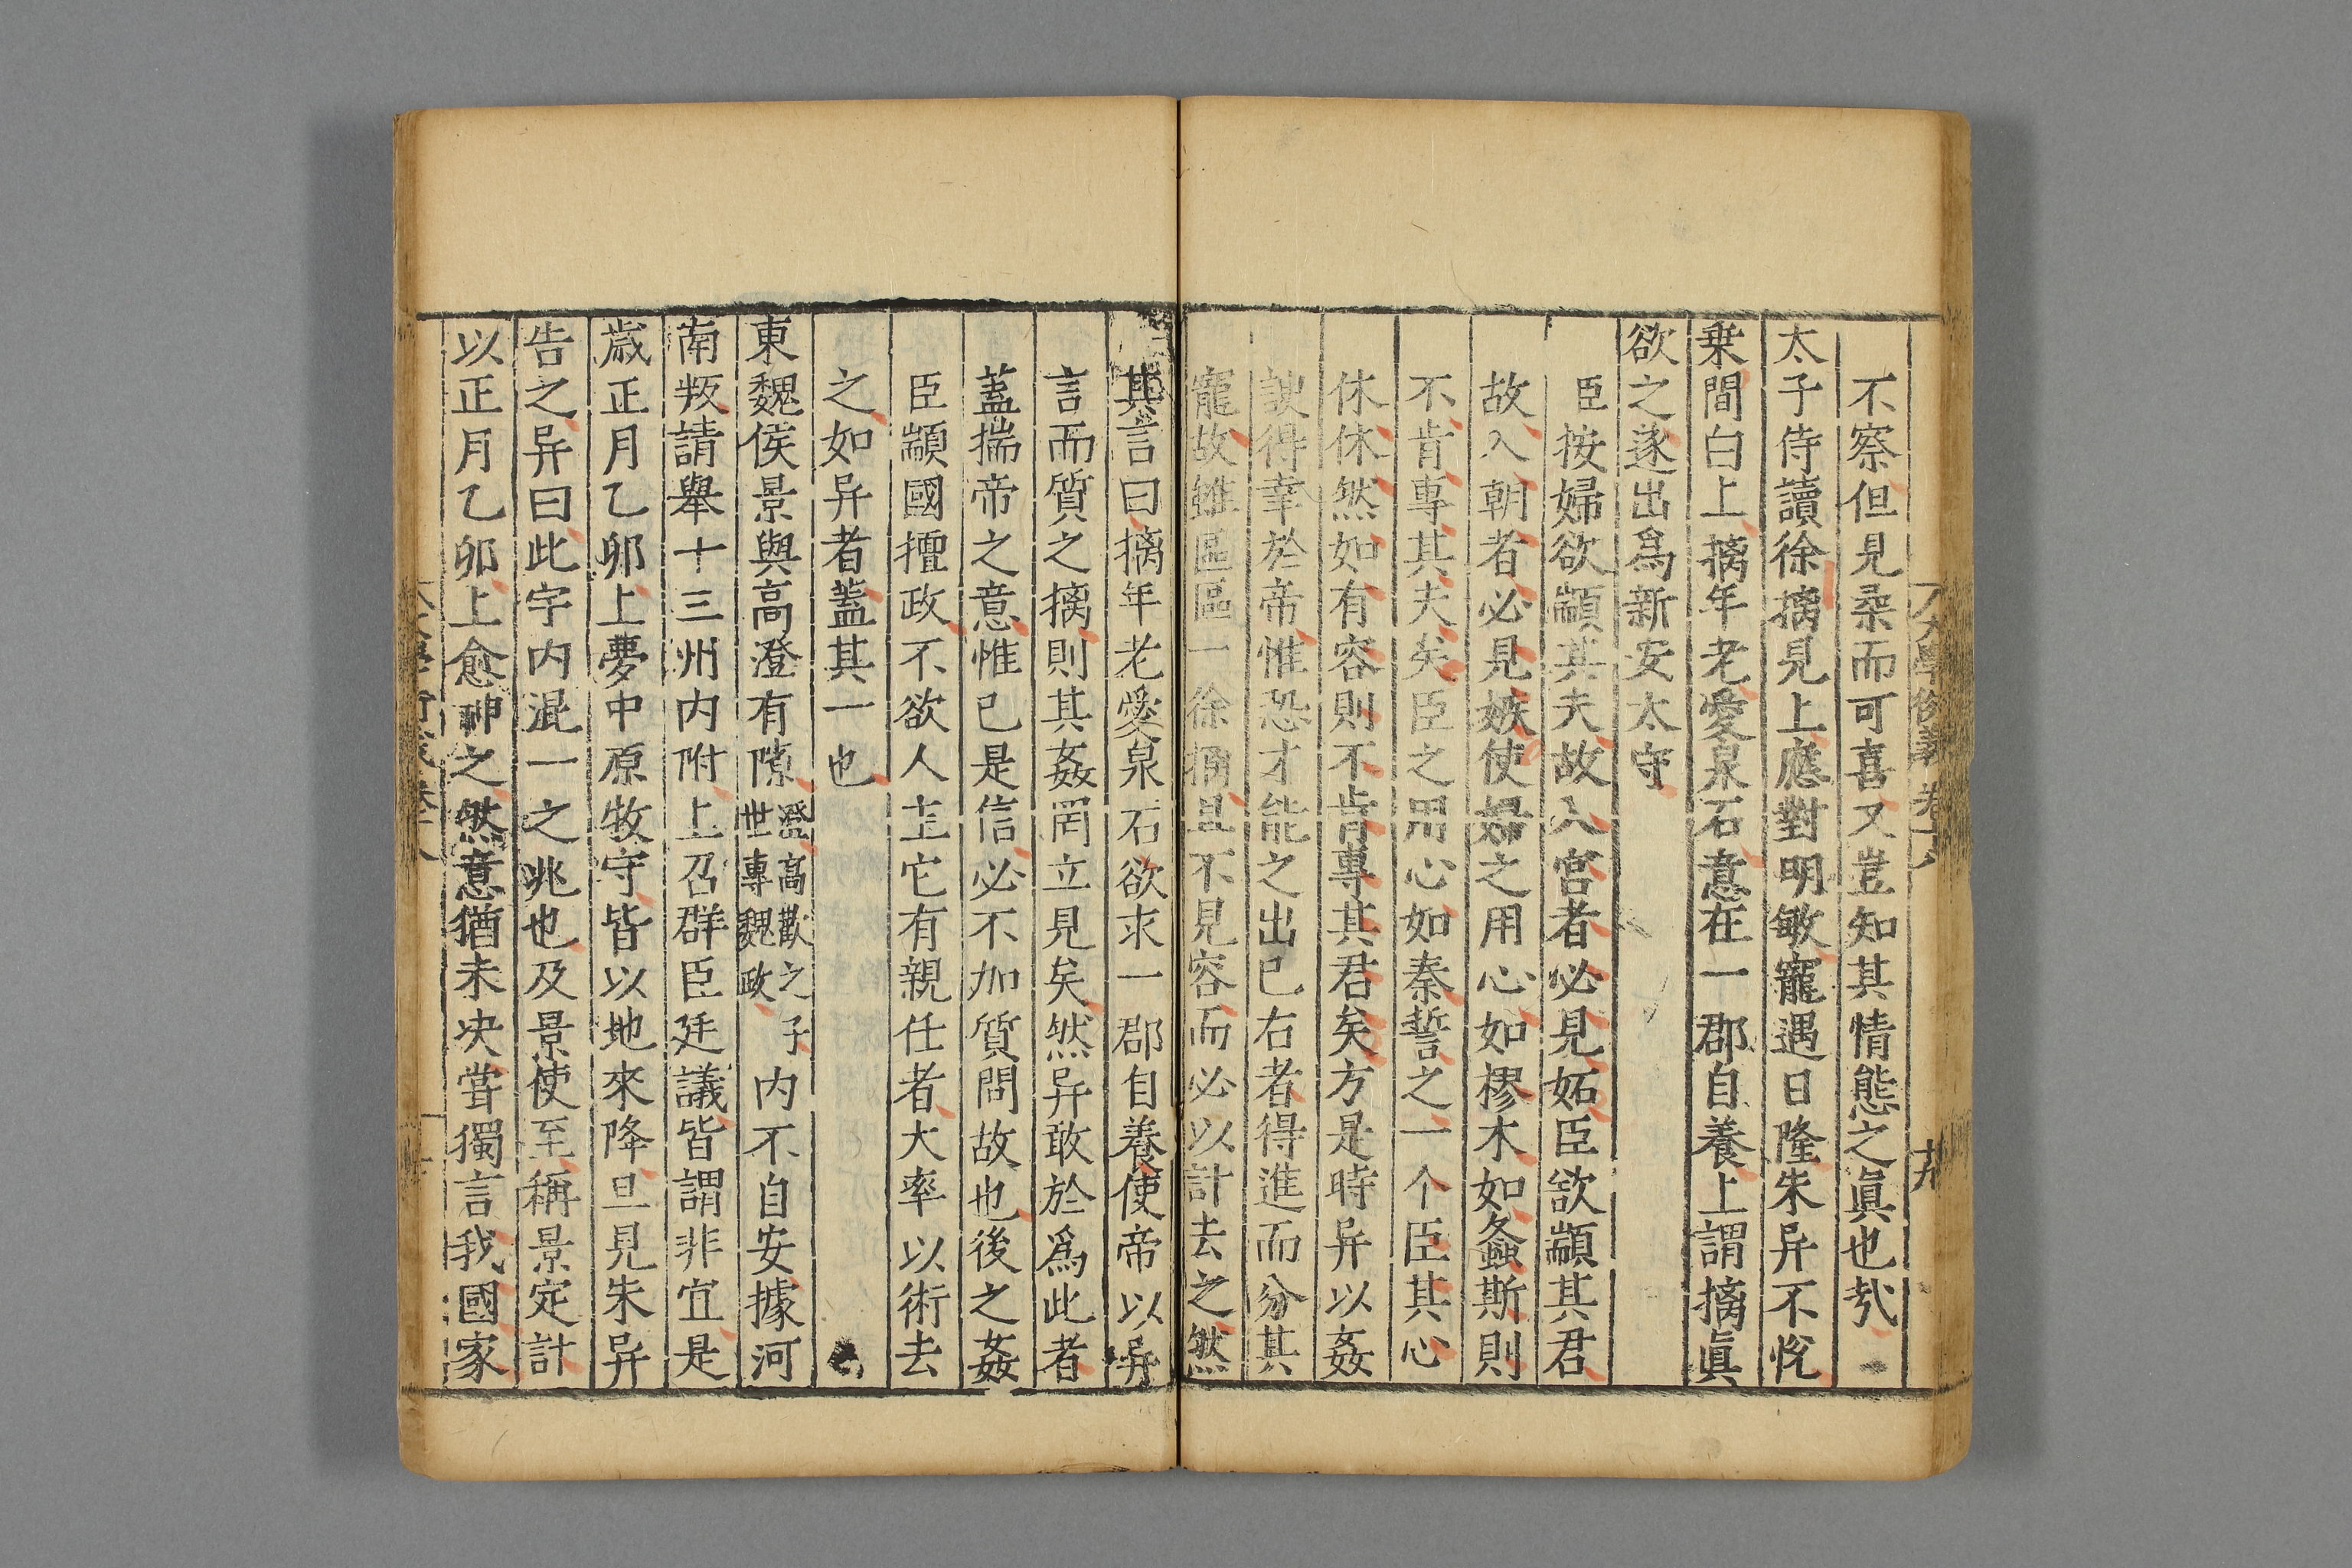 大學衍義 卷十八
不察但見柔而可喜又豈知其情態之眞也㢤
太子侍讀徐摛見上應對明敏寵遇日隆朱异不恱
乗間白上摛年老愛泉石意在一郡自養上謂摛眞
欲之遂出爲新安太守
臣按婦欲顓其夫故入宮者必見妬臣欲顓其君
故入朝者必見嫉使婦之用心如樛木如螽斯則
不肯專其夫矣臣之用心如秦誓之一个臣其心
休休然如有容則不肯專其君矣方是時异以姦
諛得幸於帝惟恐才能之出已右者得進而分其
寵故雖區區一徐摛且不見容而必以計去之然
其言曰摛年老愛泉石欲求一郡自養使帝以异
言而質之摛則其姦罔立見矣然异敢於爲此者
蓋揣帝之意惟已是信必不加質問故也後之姦
臣顓國擅政不欲人主它有親任者大率以術去
之如异者蓋其一也
東魏侯景與高澄有隙澄髙歡之子世專魏政内不自安據河
南叛請舉十三州内附上召群臣廷議皆謂非宜是
歲正月乙卯上夢中原牧守皆以地來降旦見朱异
告之异曰此宇内混一之兆也及景使至稱景定計
以正月乙卯上愈神之然意猶未决嘗獨言我國家